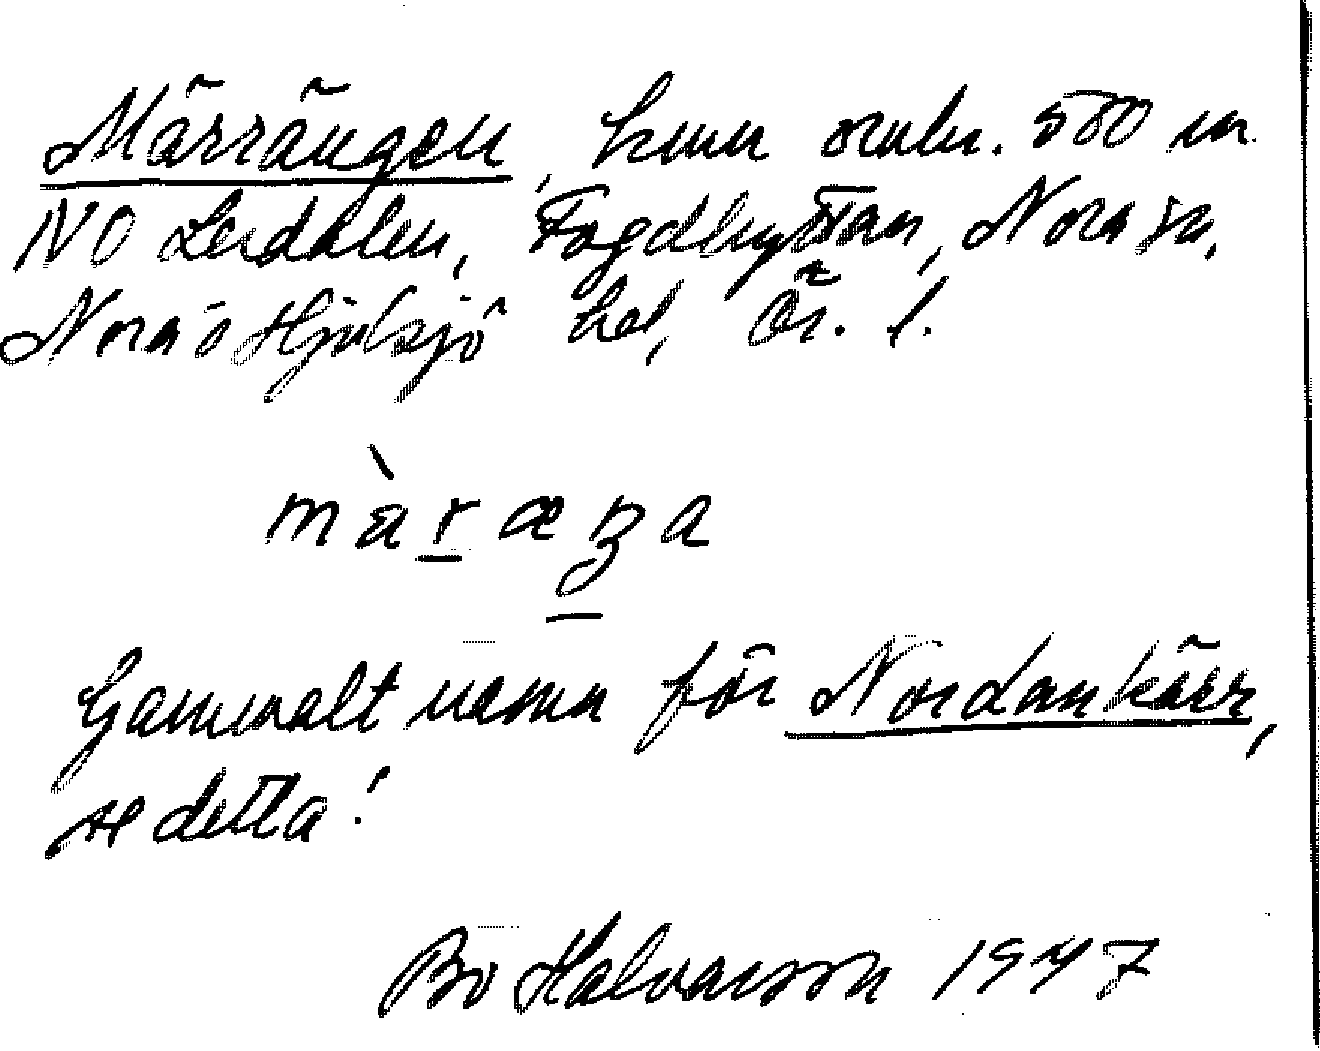 Märrängen, hmn omkr. 500 m
NO Lerdalen, Fogdhyttan, Nora sn,
Nora o Hjulsjö hd, Ör. l.
Gammalt namn för Nordankärr,
se detta!
Bo Halvarsson 1947